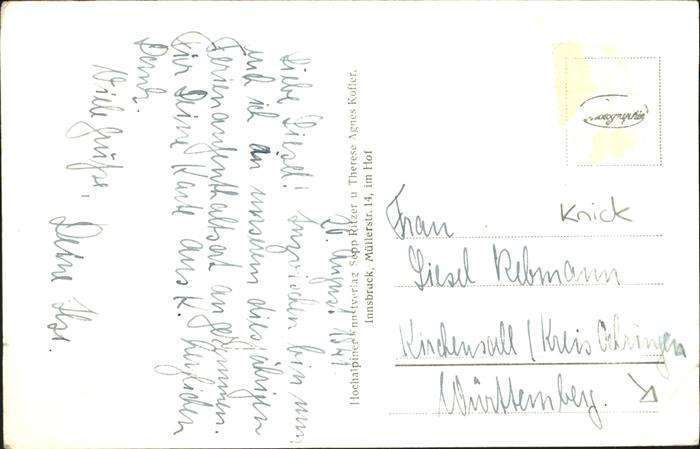 20. August 1941
Liebe Liesel! Inzwischen bin nun
auch ich an unserem diesjährigen
Ferienaufenthaltsort angekommen.
Für Deine Karte aus K. herzlichen
Dank.
Viele Grüße,
Deine Ilse.
Hochalpiner Kunstverlag Sepp Ritzer u Therese Agnes Kofler,
Innsbruck, Müllerstr. 14, im Hof
Knick
Frau
Liesel Rebmann
Kirchensall / Kreis Öhringen
Württemberg.